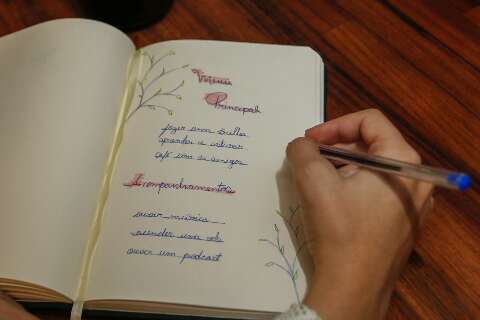 Menu
Principal
fazer uma
aprender a
café com os amigos
Acompanhamentos
ouvir música
acender uma vela
ouvir um podcast